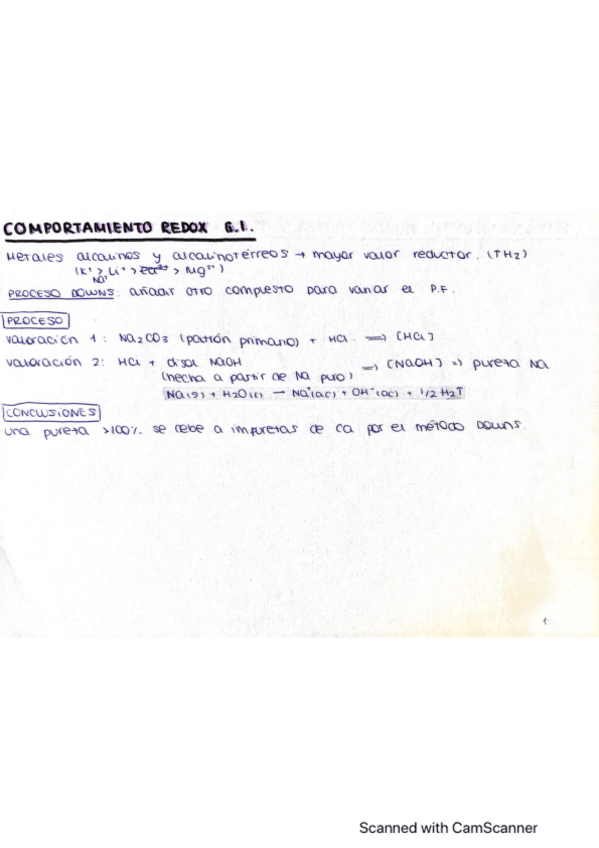 COMPORTAMIENTO REDOX G.I.
Metales alcalinos y alcalinotérreos → mayor valor reductor. (↑H2)
(K⁺ > Li⁺ > > Mg²⁺)
Na⁺
PROCESO DOWNS: añadir otro compuesto para variar el P.F.
PROCESO
Valoración 1: Na2CO3 (patrón primario) + HCl ⟹ [HCl]
Valoración 2: HCl + disol NaOH ⟹ [NaOH] ⟹ pureza Na
(hecha a partir de Na puro)
Na(s) + H2O(l) → Na⁺(ac) + OH⁻(ac) + 1/2 H2↑
CONCLUSIONES
una pureza >100% se debe a impurezas de Ca por el método Downs.
1
Scanned with CamScanner